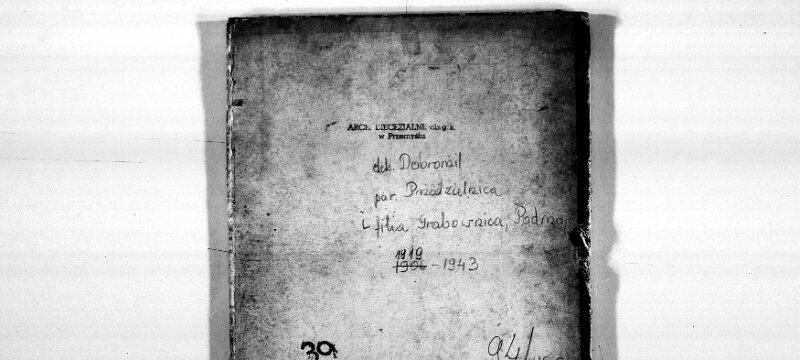 ARCH. DIECEZJALNE ob.g.k.
w Przemyślu
dek. Dobromil
par. Przedzielnica
i filia Grabownica,
1919
1906 - 1943
39
94/